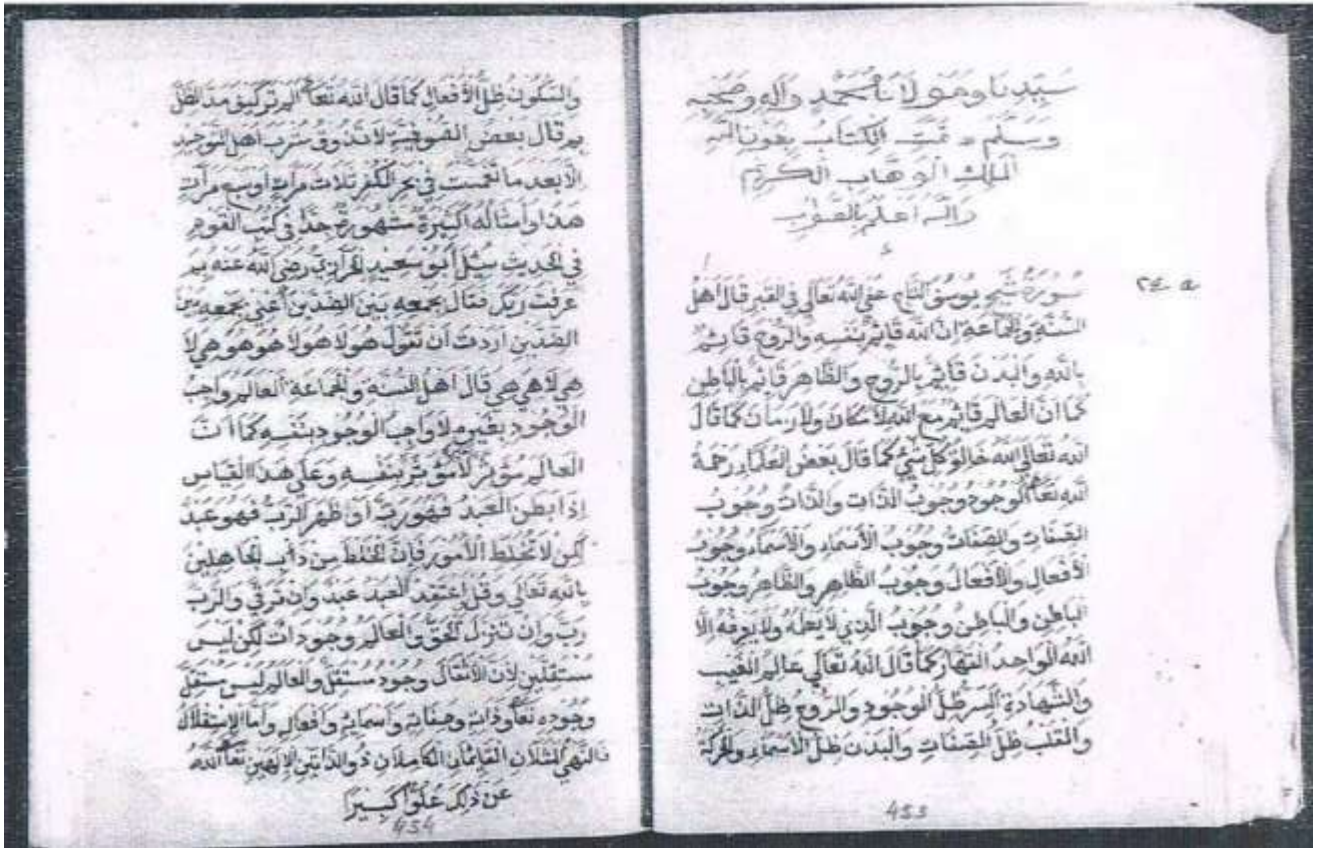 سيدنا ومولانا محمد واله وصحبه
وسلم تمت الكتاب بعون الله
الملك الوهاب الكريم
والله اعلم بالصواب
يوسف التاج الله تعالى في القبر قال اهل
السنة والجماعة ان الله قائم بنفسه والروح قائم
بالله والبدن قائم بالروح والظاهر قائم بالباطن
كما ان العالم قائم مع الله لا مكان ولا زمان كما قال
الله تعالى الله خالق كل شيء كما قال بعض العلماء رحمة
الله تعا الوجود وجوب الذات والذات وجوب
الصفات والصفات وجوب الأسماء والأسماء وجوب
الأفعال والأفعال وجوب الظاهر والظاهر وجوب
الباطن والباطن وجوب الذي لا يعلمه ولا يعرفه الا
الله الواحد القهار كما قال الله تعالى عالم الغيب
والشهادة السر ظل الوجود والروح ظل الذات
والقلب ظل الصفات والبدن ظل الأسماء والحركة
453
والسكون ظل الأفعال كما قال الله تعا الم تر كيف مد الظل
بم قال بعض الصوفية لا تذوق شرب اهل التوحيد
الا بعد ما تغمست في بحر الكفر ثلاث مرات او سبع مرات
هذا وامثاله كبيرة مشهورة جدا في كتب القوم
في الحديث سئل ابو سعيد الخرازي رضي الله عنه بم
عرفت ربك فقال بجمعه بين الضدين أعني بجمعه بين
الضدين اردت ان تقول هو لا هو لا هو هو هي لا
هي لا هي هي قال اهل السنة والجماعة العالم واجب
الوجود بغيره لا واجب الوجود بنفسه كما أن
العالم مؤثر لا مؤثر بنفسه وعلى هذا القياس
إذا بطن العبد فهو رب أو ظهر الرب فهو عبد
لكن لا تخلط الأمور فإن الخلط من دأب الجاهلين
بالله تعالى وقل اعتقد العبد عبد وان ترقى والرب
رب وان تنزل الحق والعالم وجودات لكن ليس
مستقلين لان وجود مستقل والعالم ليس مستقل
وجوده تعا وذات وصفات واسماء وافعال وأما الاستقلال
المثلان القائمان الكاملان ذو الذاتين الإلهين تعا الله
عن ذلك علوا كبيرا
454